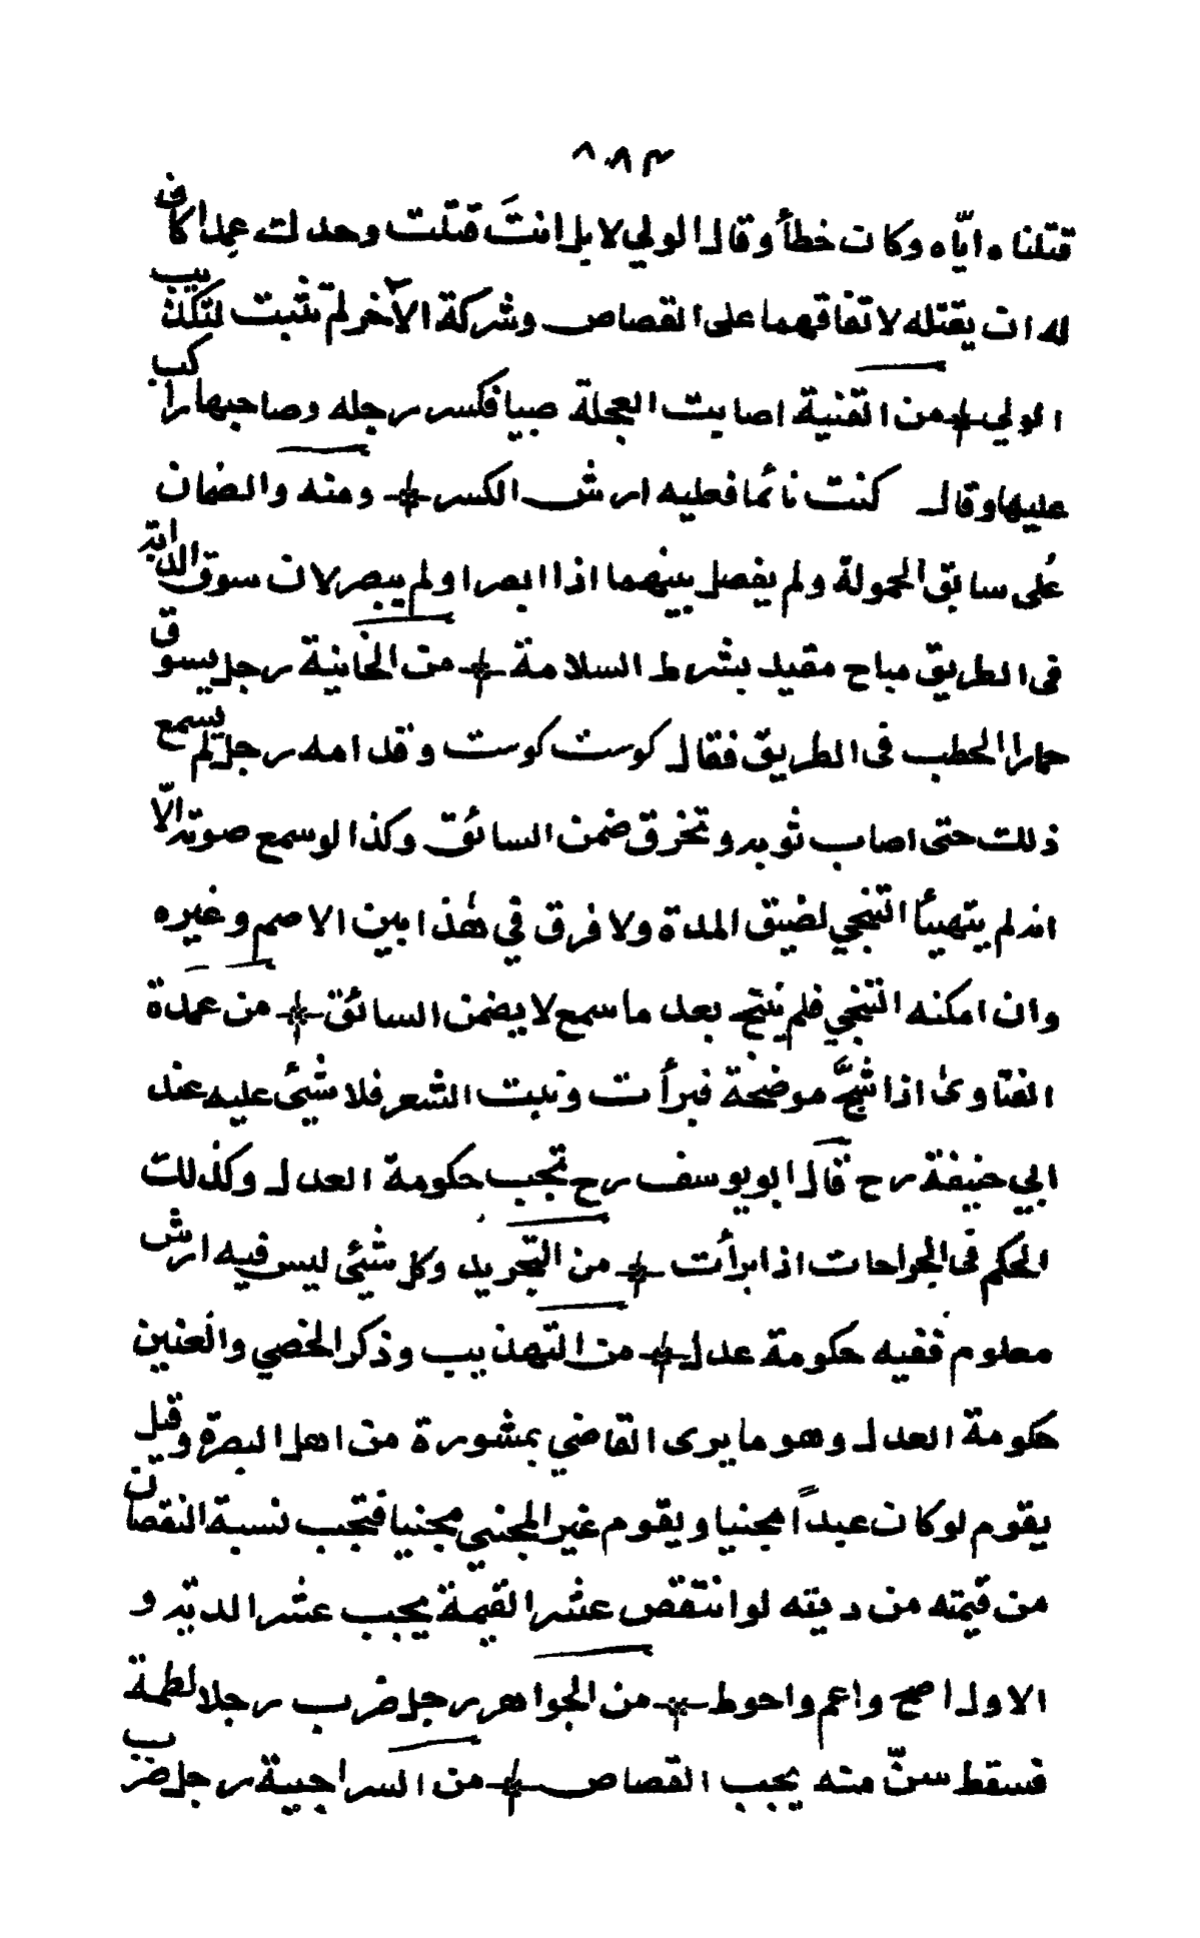 ٨٨٣
قتلناه اياه وكان خطأ وقال الولي لا بل انتَ قتلت وحدك عمدا كان
له ان يقتله لاتفاقهما على القصاص وشركة الآخر لم تثبت لتكذيب
الولي من القنية اصابت العجلة صبيا فكسر رجله وصاحبها راكب
عليها وقال كنت نائما فعليه ارش الكسر ومنه والضمان
على سائق الحمولة ولم يفصل بينهما اذا ابصر او لم يبصر لان سوق الدابة
في الطريق مباح مقيد بشرط السلامة من الخانية رجل يسوق
حمارا الحطب في الطريق فقال كوست كوست وقدامه رجل لم يسمع
ذلك حتى اصاب ثوبه وتخرق ضمن السائق وكذا لو سمع صوته الّا
انه لم يتهيأ التنحي لضيق المدة ولا فرق في هذا بين الاصم وغيره
وان امكنه التنحي فلم يتنح بعد ما سمع لا يضمن السائق من عمدة
الفتاوى اذا شجَّ موضحة فبرأت ونبت الشعر فلا شيئ عليه عند
ابي حنيفة رح قال ابو يوسف رح تجب حكومة العدل وكذلك
الحكم في الجراحات اذا برأت من التجريد وكل شيئ ليس فيه ارش
معلوم ففيه حكومة عدل من التهذيب وذكر الخصي والعنين
حكومة العدل وهو ما يرى القاضي بمشورة من اهل البصرة وقيل
يقوم لو كان عبداً مجنيا ويقوم غير المجني مجنيا فتجب نسبة النقصان
من قيمته من ديته لو انتقص عشر القيمة يجب عشر الدية و
الاول اصح واعم واحوط من الجواهر رجل ضرب رجلا لطمة
فسقط سنّ منه يجب القصاص من السراجية رجل ضرب